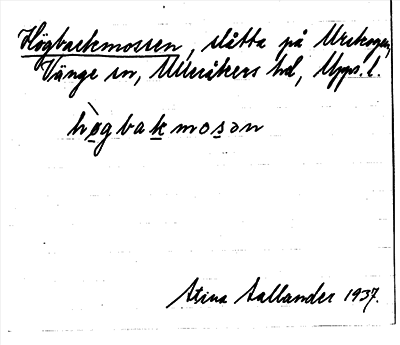 Högbackmossen, slåtta på Urskogen,
Vänge sn, Ulleråkers hd, Upps. l.
hògbakmosən
Stina Sallander 1937.